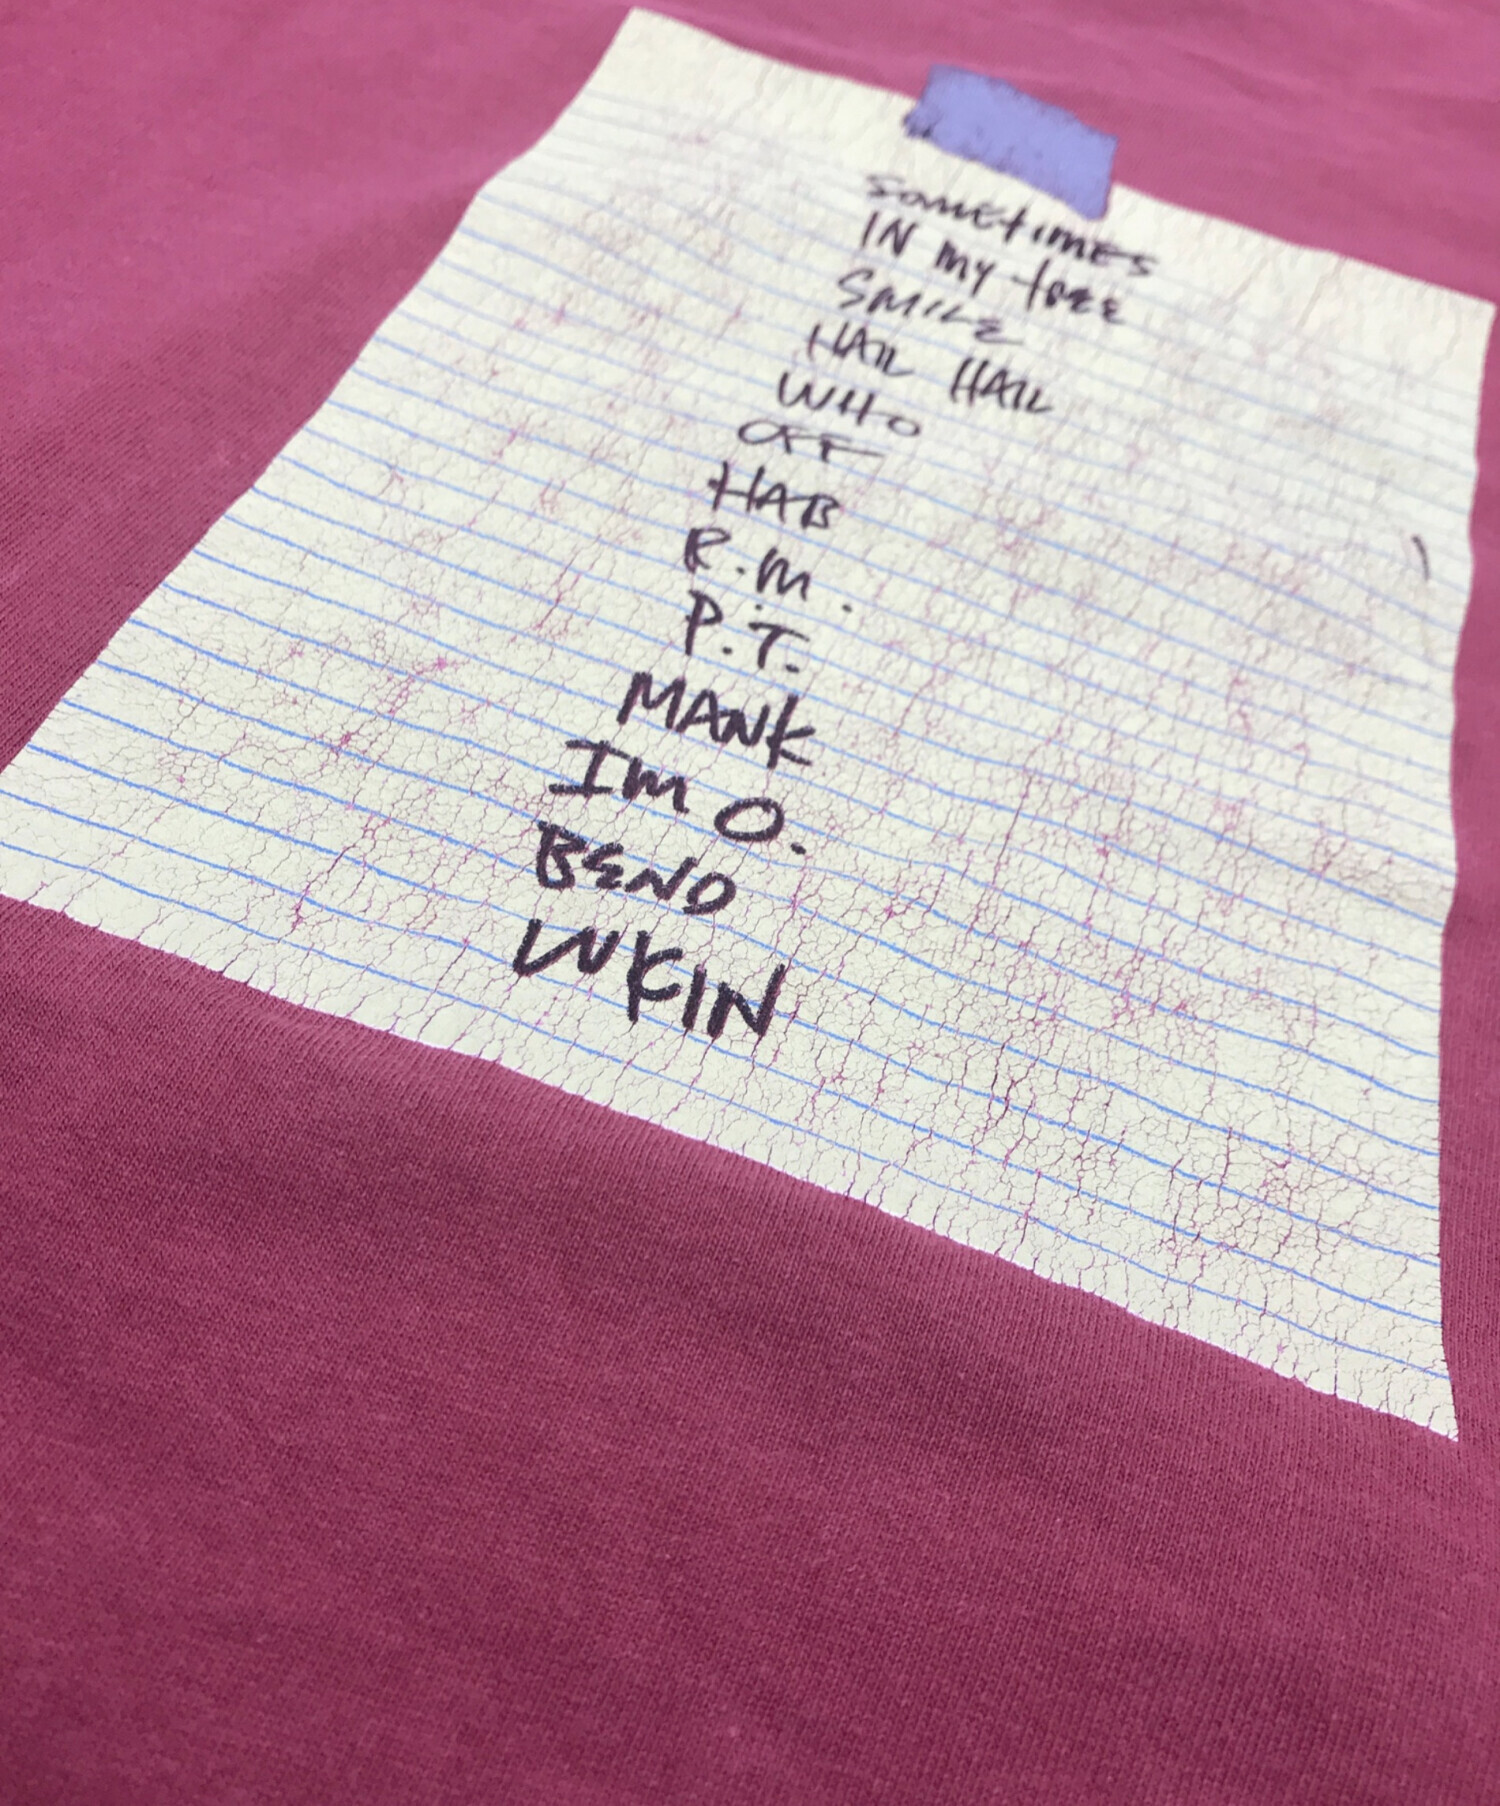 SOMETIMES
IN MY TREE
SMILE
HAIL HAIL
WHO
OFF
HAB
R.M.
P.T.
MANK
IM O.
BEND
LUKIN